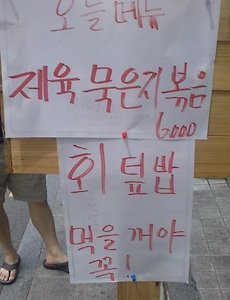 오늘메뉴
제육 묵은지볶음
6000
회덮밥
먹을꺼야
꼭!